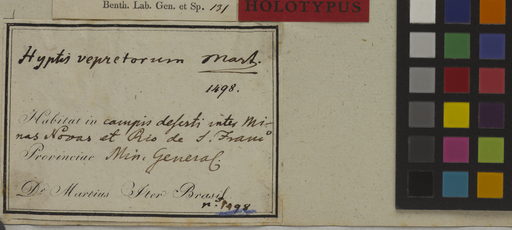 Benth. Lab. Gen. et Sp. 131
HOLOTYPUS
Hyptis vepretorum Mart.
1498.
Habitat in campis deserti inter Mi-
nas Novas et Rio de S. Franc.º
Provinciae Min. Generaes.
Dr Martius Iter Brasil.
nº 1498